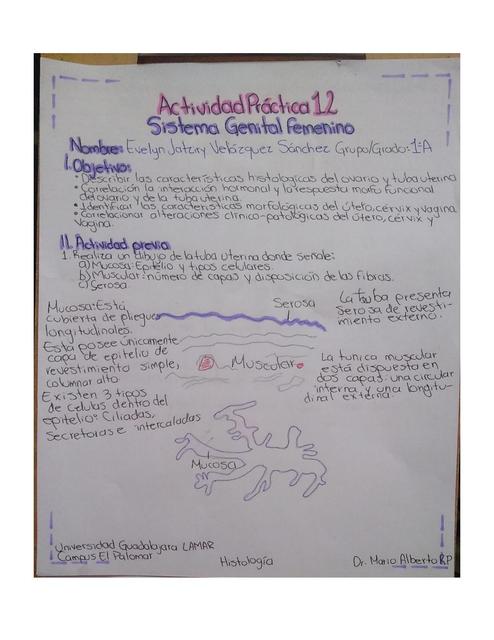 Actividad Práctica 12
Sistema Genital Femenino
Nombre: Evelyn Jatziry Velázquez Sánchez Grupo/Grado: 1°A
I. Objetivo:
• Describir las características histologicas del ovario y tuba uterina
• Correlación la interacción hormonal y la respuesta morfo funcional
del ovario y de la tuba uterina.
• Identificar las características morfológicas del útero, cérvix y vagina.
• Correlacionar alteraciones clínico-patológicas del útero, cérvix y
vagina.
II. Actividad previa
1. Realiza un dibujo de la tuba uterina donde señale:
a) Mucosa: Epitelio y tipos celulares.
b) Muscular: número de capas y disposición de las fibras.
c) Serosa
Mucosa: Está
cubierta de pliegues
longitudinales.
Esta posee únicamente
capa de epitelio de
revestimiento simple,
columnar alto.
Existen 3 tipos
de células dentro del
epitelio: Ciliadas,
Secretoras e intercaladas
Serosa
La tuba presenta
Serosa de revesti-
miento externo.
Muscular
La tunica muscular
está dispuesta en
dos capas: una circular
interna y una longitu-
dinal externa.
Mucosa
Universidad Guadalajara LAMAR
Campus El Palomar
Histología
Dr. Mario Alberto RP